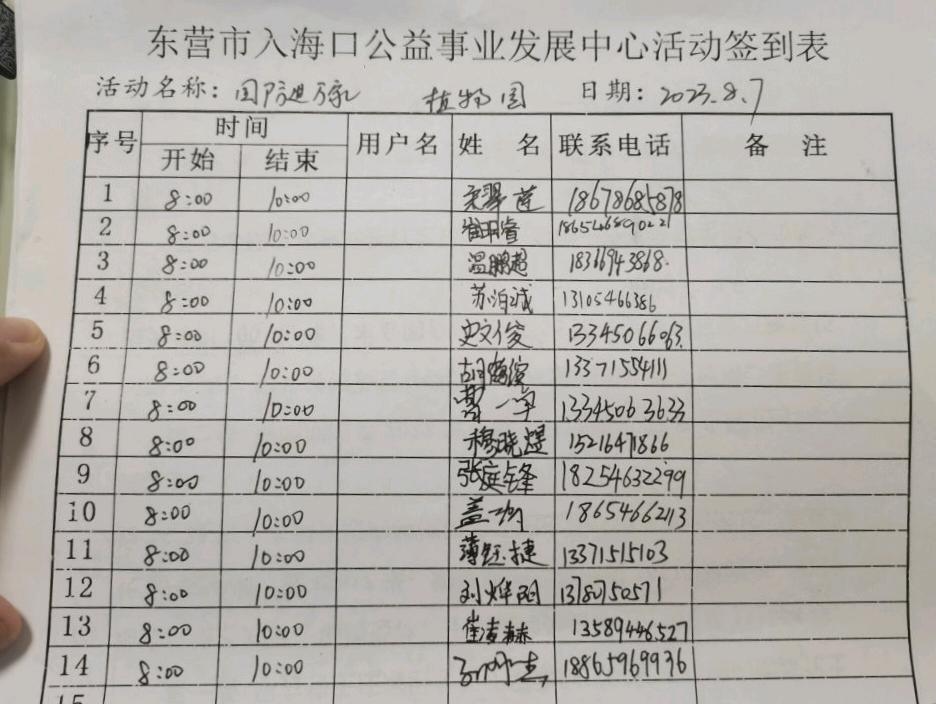 东营市入海口公益事业发展中心活动签到表
活动名称：国防进万家 植物园 日期：2023.8.7
序号 时间 用户名 姓 名 联系电话 备 注
开始 结束
1 8:00 10:00 18678685878
2 8:00 10:00 崔明睿
3 8:00 10:00 温鹏超 18366943868
4 8:00 10:00 苏泊诚 13105466386
5 8:00 10:00 史文俊 13345066063
6 8:00 10:00 13371554111
7 8:00 10:00 13345063633
8 8:00 10:00 穆晓煜 15216471866
9 8:00 10:00 张庭锋 18254632299
10 8:00 10:00 18654662113
11 8:00 10:00 薄钰捷 13371515103
12 8:00 10:00 刘烨阳 13780750571
13 8:00 10:00 崔凌赫 13589446527
14 8:00 10:00 18865969936